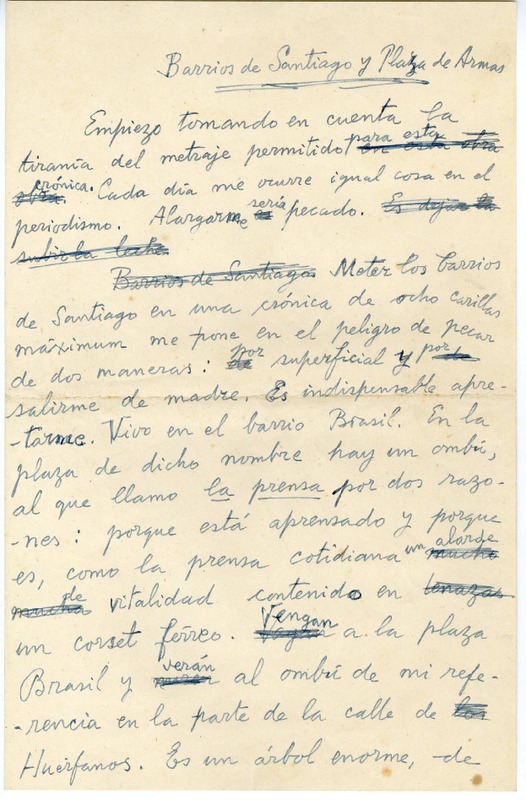 Barrios de Santiago y Plaza de Armas
Empiezo tomando en cuenta la
tiranía del metraje permitido para esta en esta obra
obra crónica. Cada día me ocurre igual cosa en el
periodismo. Alargarme sería es pecado. Es dejar la
subir la leche
Barrios de Santiago. Meter los barrios
de Santiago en una crónica de ocho carillas
máximum me pone en el peligro de pecar
de dos maneras: por de superficial y por de
salirme de madre. Es indispensable apre-
-tarme. Vivo en el barrio Brasil. En la
plaza de dicho nombre hay un ombú,
al que llamo la prensa por dos razo-
-nes: porque está aprensado y porque
es, como la prensa cotidiana un alarde mucho
mucha de vitalidad contenido en tenazas
un corset férreo. Vengan a la plaza
Brasil y verán al ombú de mi refe-
-rencia en la parte de la calle de los
Huérfanos. Es un árbol enorme, -de